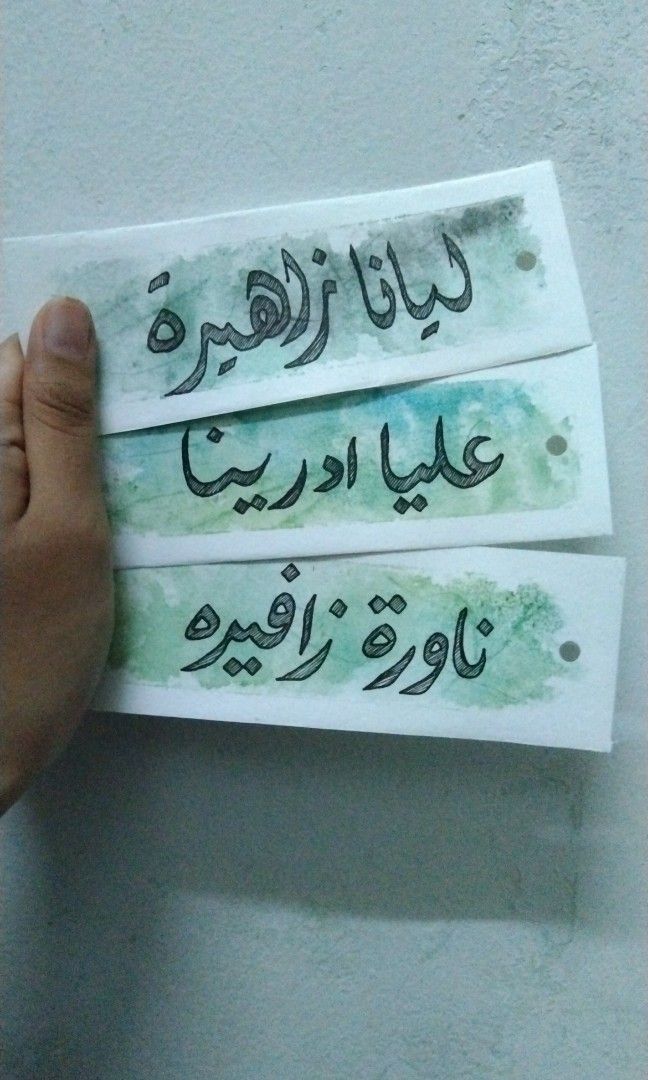 ليانا زاهيرة
عليا ادرينا
ناورة زافيره